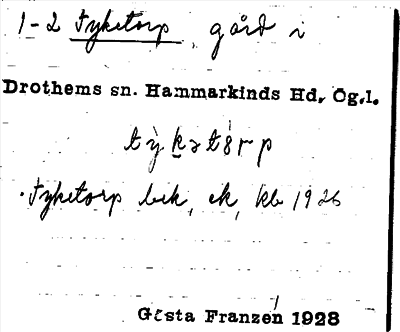 1-2 Tyketorp, gård i
Drothems sn. Hammarkinds Hd, Ög.l.
tỳkətórp
Tyketorp bek, ek, kb 1926
Gösta Franzén 1928